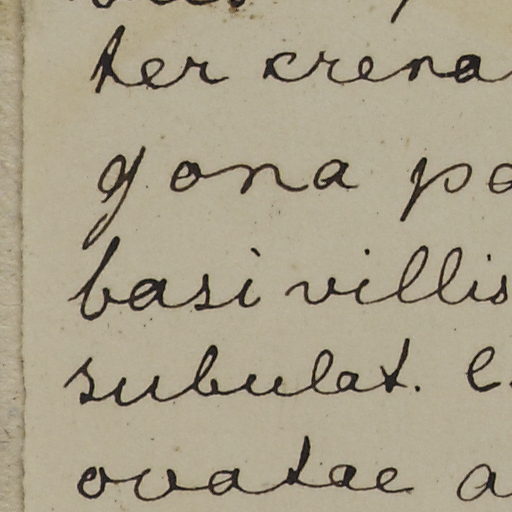 ter crena
gona pa
basi villis
subulat. C
ovatae a